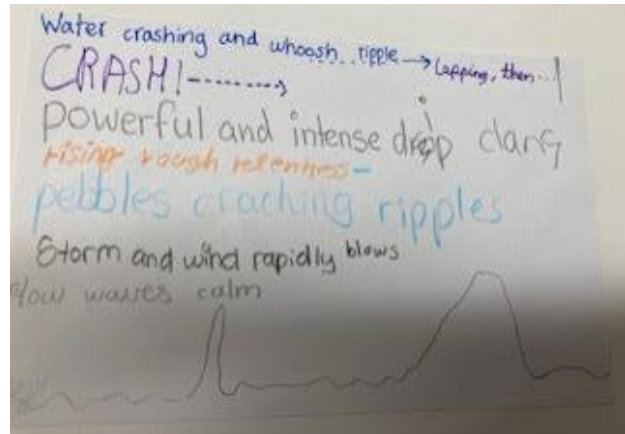 Water crashing and whoosh.. ripple → lapping, then...
CRASH!--------→
powerful and intense drip clang
rising rough
pebbles craching ripples
Storm and wind rapidly blows
slow waves calm